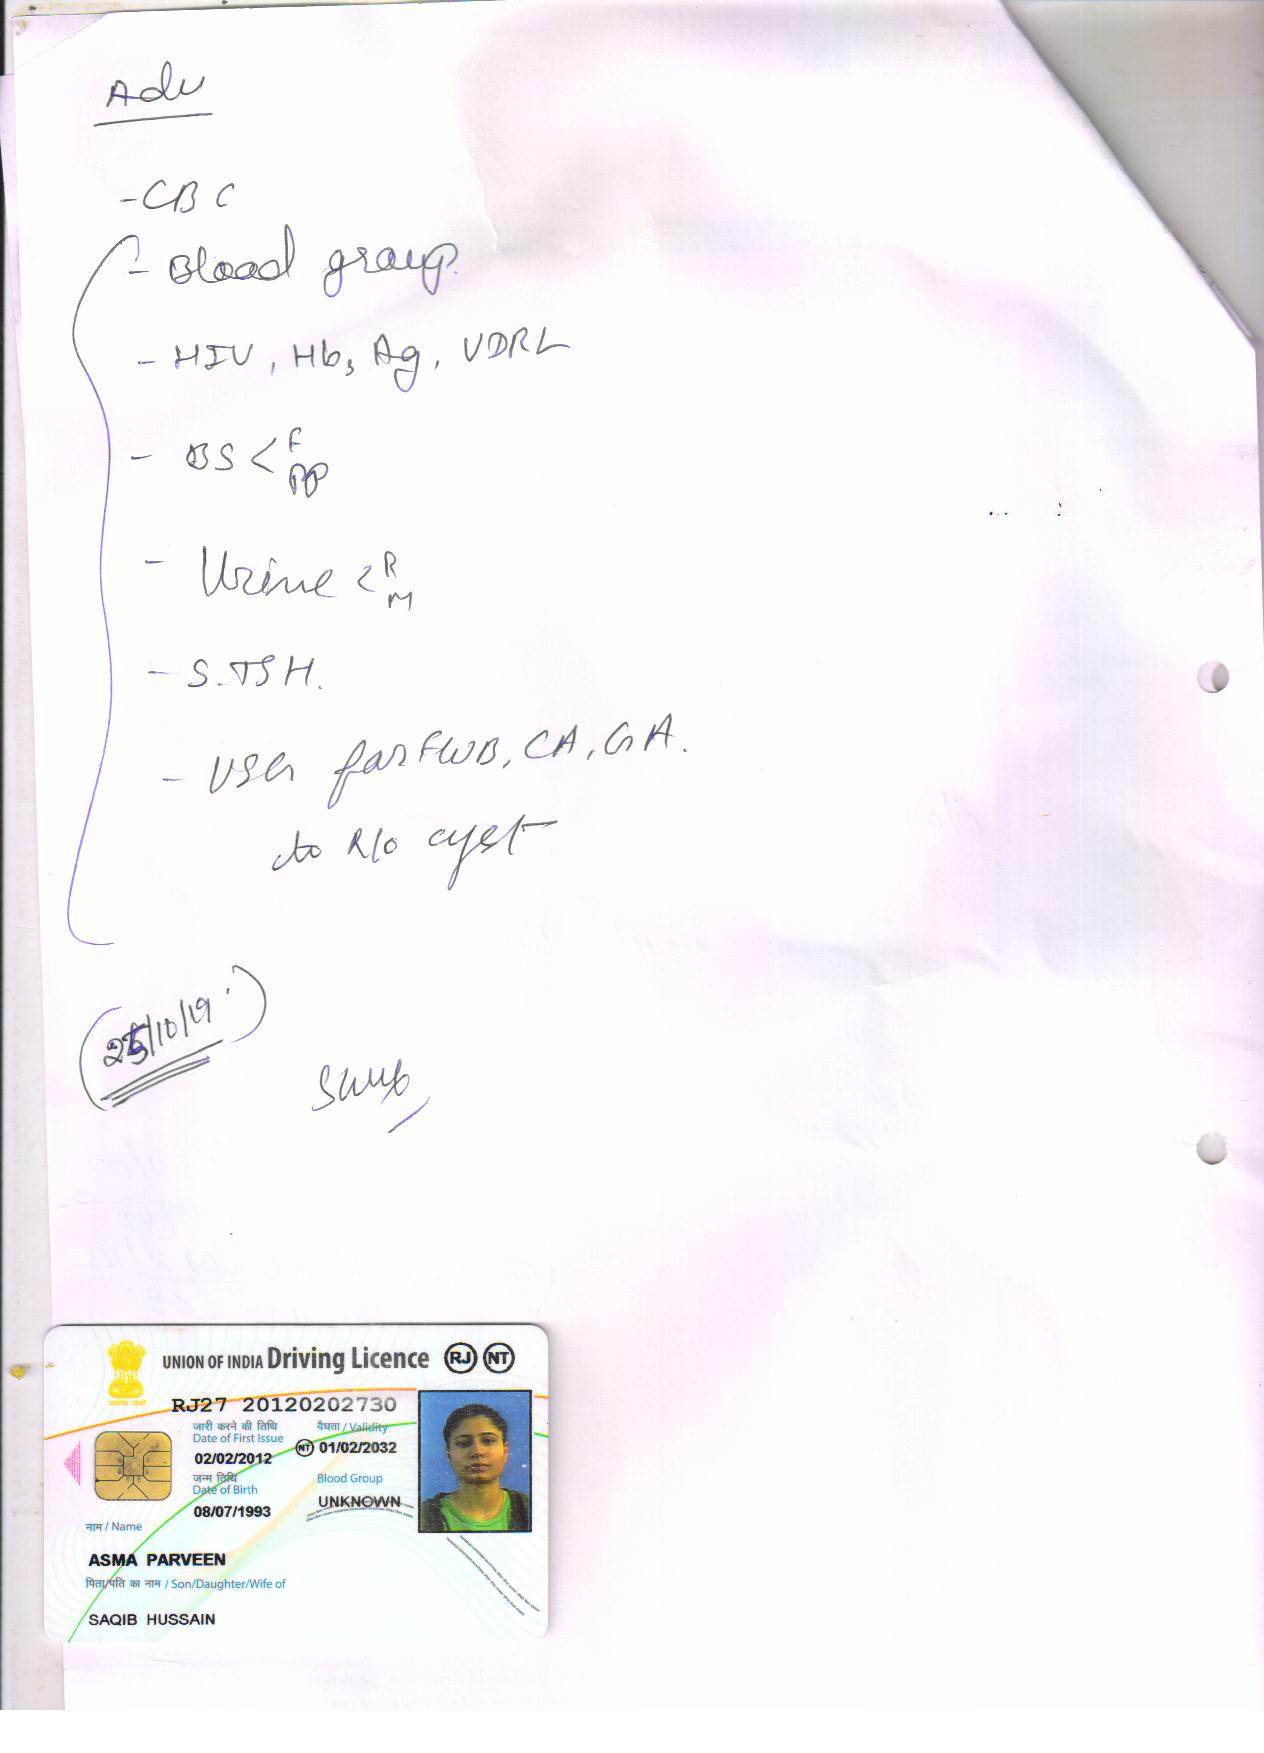 Adv
- CBC
- Blood group.
- HIV, Hbs Ag, VDRL
- BS < F
PP
- Urine < R
M
- S.TSH.
- USG for FWB, CA, GA.
to R/o cyst
25/10/19
UNION OF INDIA Driving Licence RJ NT
RJ27 20120202730
जारी करने की तिथि वैधता / Validity
Date of First Issue NT 01/02/2032
02/02/2012
जन्म तिथि Blood Group
Date of Birth UNKNOWN
08/07/1993
नाम / Name
ASMA PARVEEN
पिता/पति का नाम / Son/Daughter/Wife of
SAQIB HUSSAIN